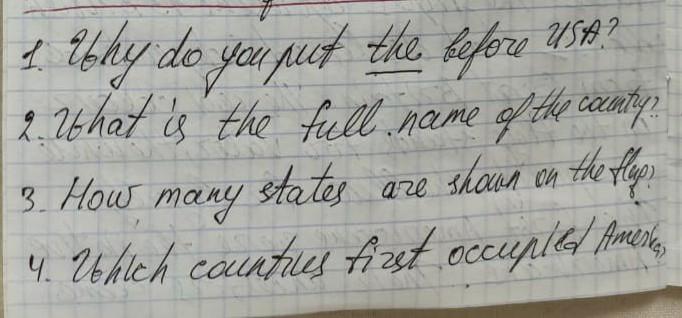 1. Why do you put the before USA?
2. What is the full name of the country?
3. How many states are shown on the flag?
4. Which countries first occupied America?